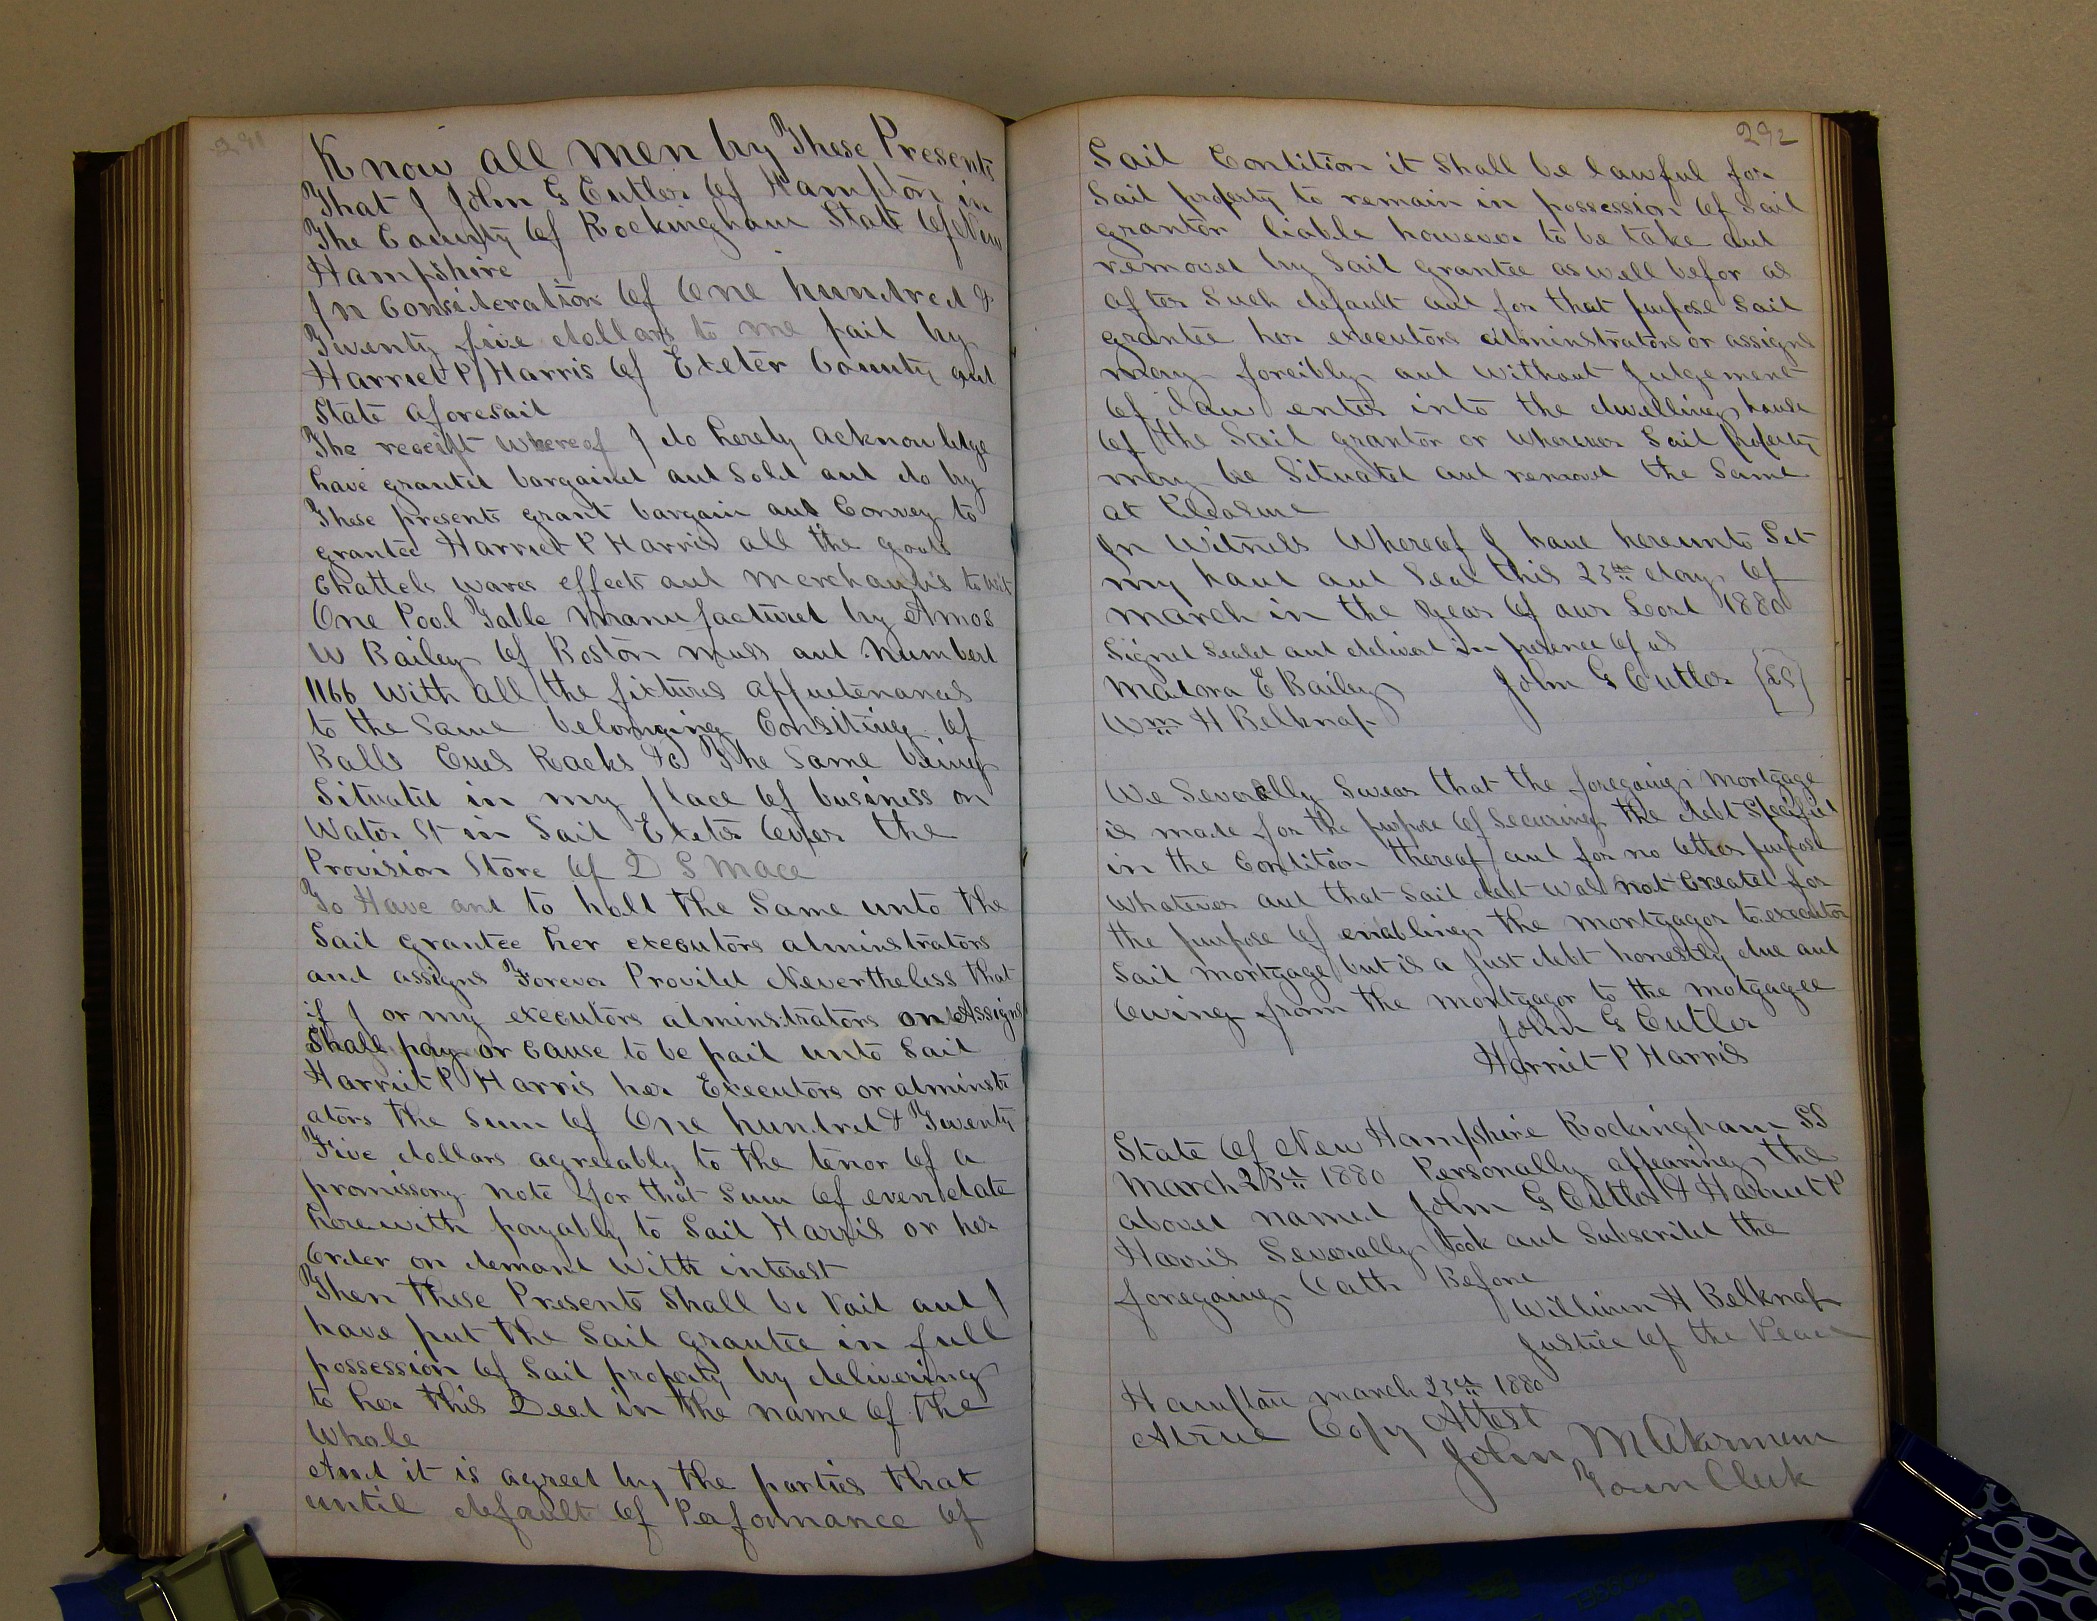 291
Know all men by These Presents
That I John G Cutler of Hampton in
The County of Rockingham State of New
Hampshire
In Consideration of One hundred &
Twenty five dollars to me paid by
Harriet P Harris of Exeter County and
State aforesaid
The receipt whereof I do herely acknowledge
have granted bargained and Sold and do by
These presents grant bargain and Convey to
grantee Harriet P Harris all the goods
Chattels wares effects and Merchandis to wit
One Pool Table Manufactured by Amos
W Bailey of Boston Mass and Numberd
1166 With all the fixtures appuetenances
to the Same belonging Consitting of
Balls Cues Racks &c The Same being
Situated in my place of business on
Water St in Said Exeter over the
Provision Store of D S Mace
To Have and to hold the Same unto the
Said grantee her executors adminstrators
and assigns Forever Provided Nevertheless that
if I or my executors adminstrators or Assigns
Shall pay or Cause to be paid unto Said
Harriet P Harris her Executors or adminstr
ators the Sum of One hundred & Twenty
Five dollars agreeably to the tenor of a
promissory note for that Sum of even date
herewith payably to Said Harris or her
Order on demand With interest
Then These Presents Shall be Void and I
have put the Said grantee in full
possession of Said property by delivering
to her this Deed in the name of the
Whole
And it is agreed by the parties that
until default of Peformance of
292
Said Condition it Shall be lawful for
Said property to remain in possession of Said
grantor liable however to be take and
removed by Said grantee as well befor as
after Such default and for that purpose Said
grantee her executors adminstrators or assigns
may forcibly and without Judgement
of law enter into the dwelling house
of the Said grantor or wherever Said property
may be Situated and removed the Same
at Pleasure
In Witness Whereof I have hereunto Set
my hand and Seal this 23rd day of
March in the Year of our Lord 1880
Signed Sealed and deliverd in presence of us
E Bailey John G Cutler {LS}
Wm H Belknap
We Severally Swear that the foregoing Mortgage
is made for the purpose of Securing the debt Specified
in the Condition thereof and for no other purpose
Whatever and that Said debt was not Created for
the purpose of enabling the Mortgagor to executor
Said Mortgage but is a Just debt honestly due and
Owing from the Mortgagor to the motgagee
John G Cutler
Harriet P Harris
State of New Hampshire Rockingham SS
March 23rd 1880 Personally appearing the
above named John G Cutler & Harriet P
Harris Severally Took and Subscribed the
foregoing Oath Before
William H Belknap
Justice of the Peace
Hampton March 23rd 1880
A true Copy Attest
John M Akerman
Town Clerk